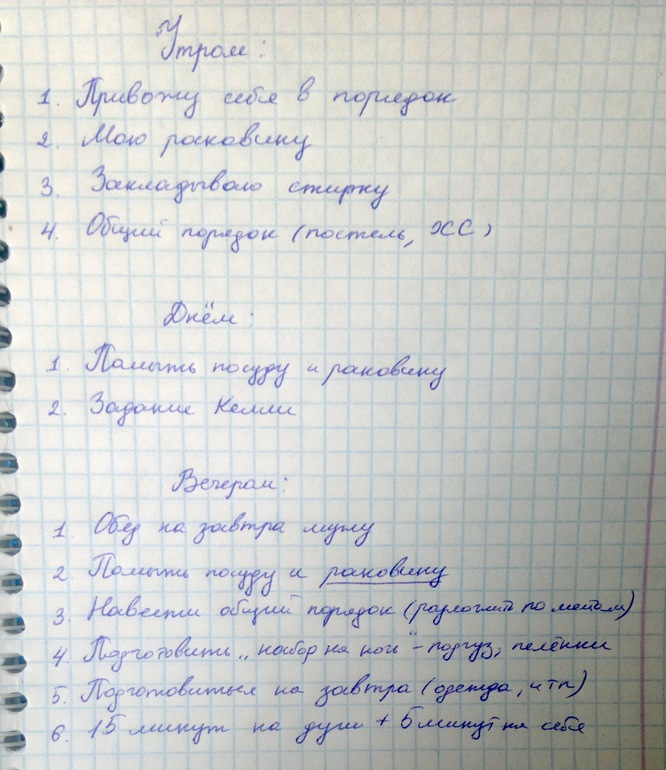 Утром:
1. Привожу себя в порядок
2. Мою раковину
3. Закладываю стирку
4. Общий порядок (постель, ЖСС)
Днём:
1. Помыть посуду и раковину
2. Задание Келли
Вечером:
1. Обед на завтра мужу
2. Помыть посуду и раковину
3. Навести общий порядок (разложить по местам)
4. Подготовить „набор на ночь" - подгуз, пелёнки
5. Подготовиться на завтра (одежда, и тп)
6. 15 минут на душ + 5 минут на себя